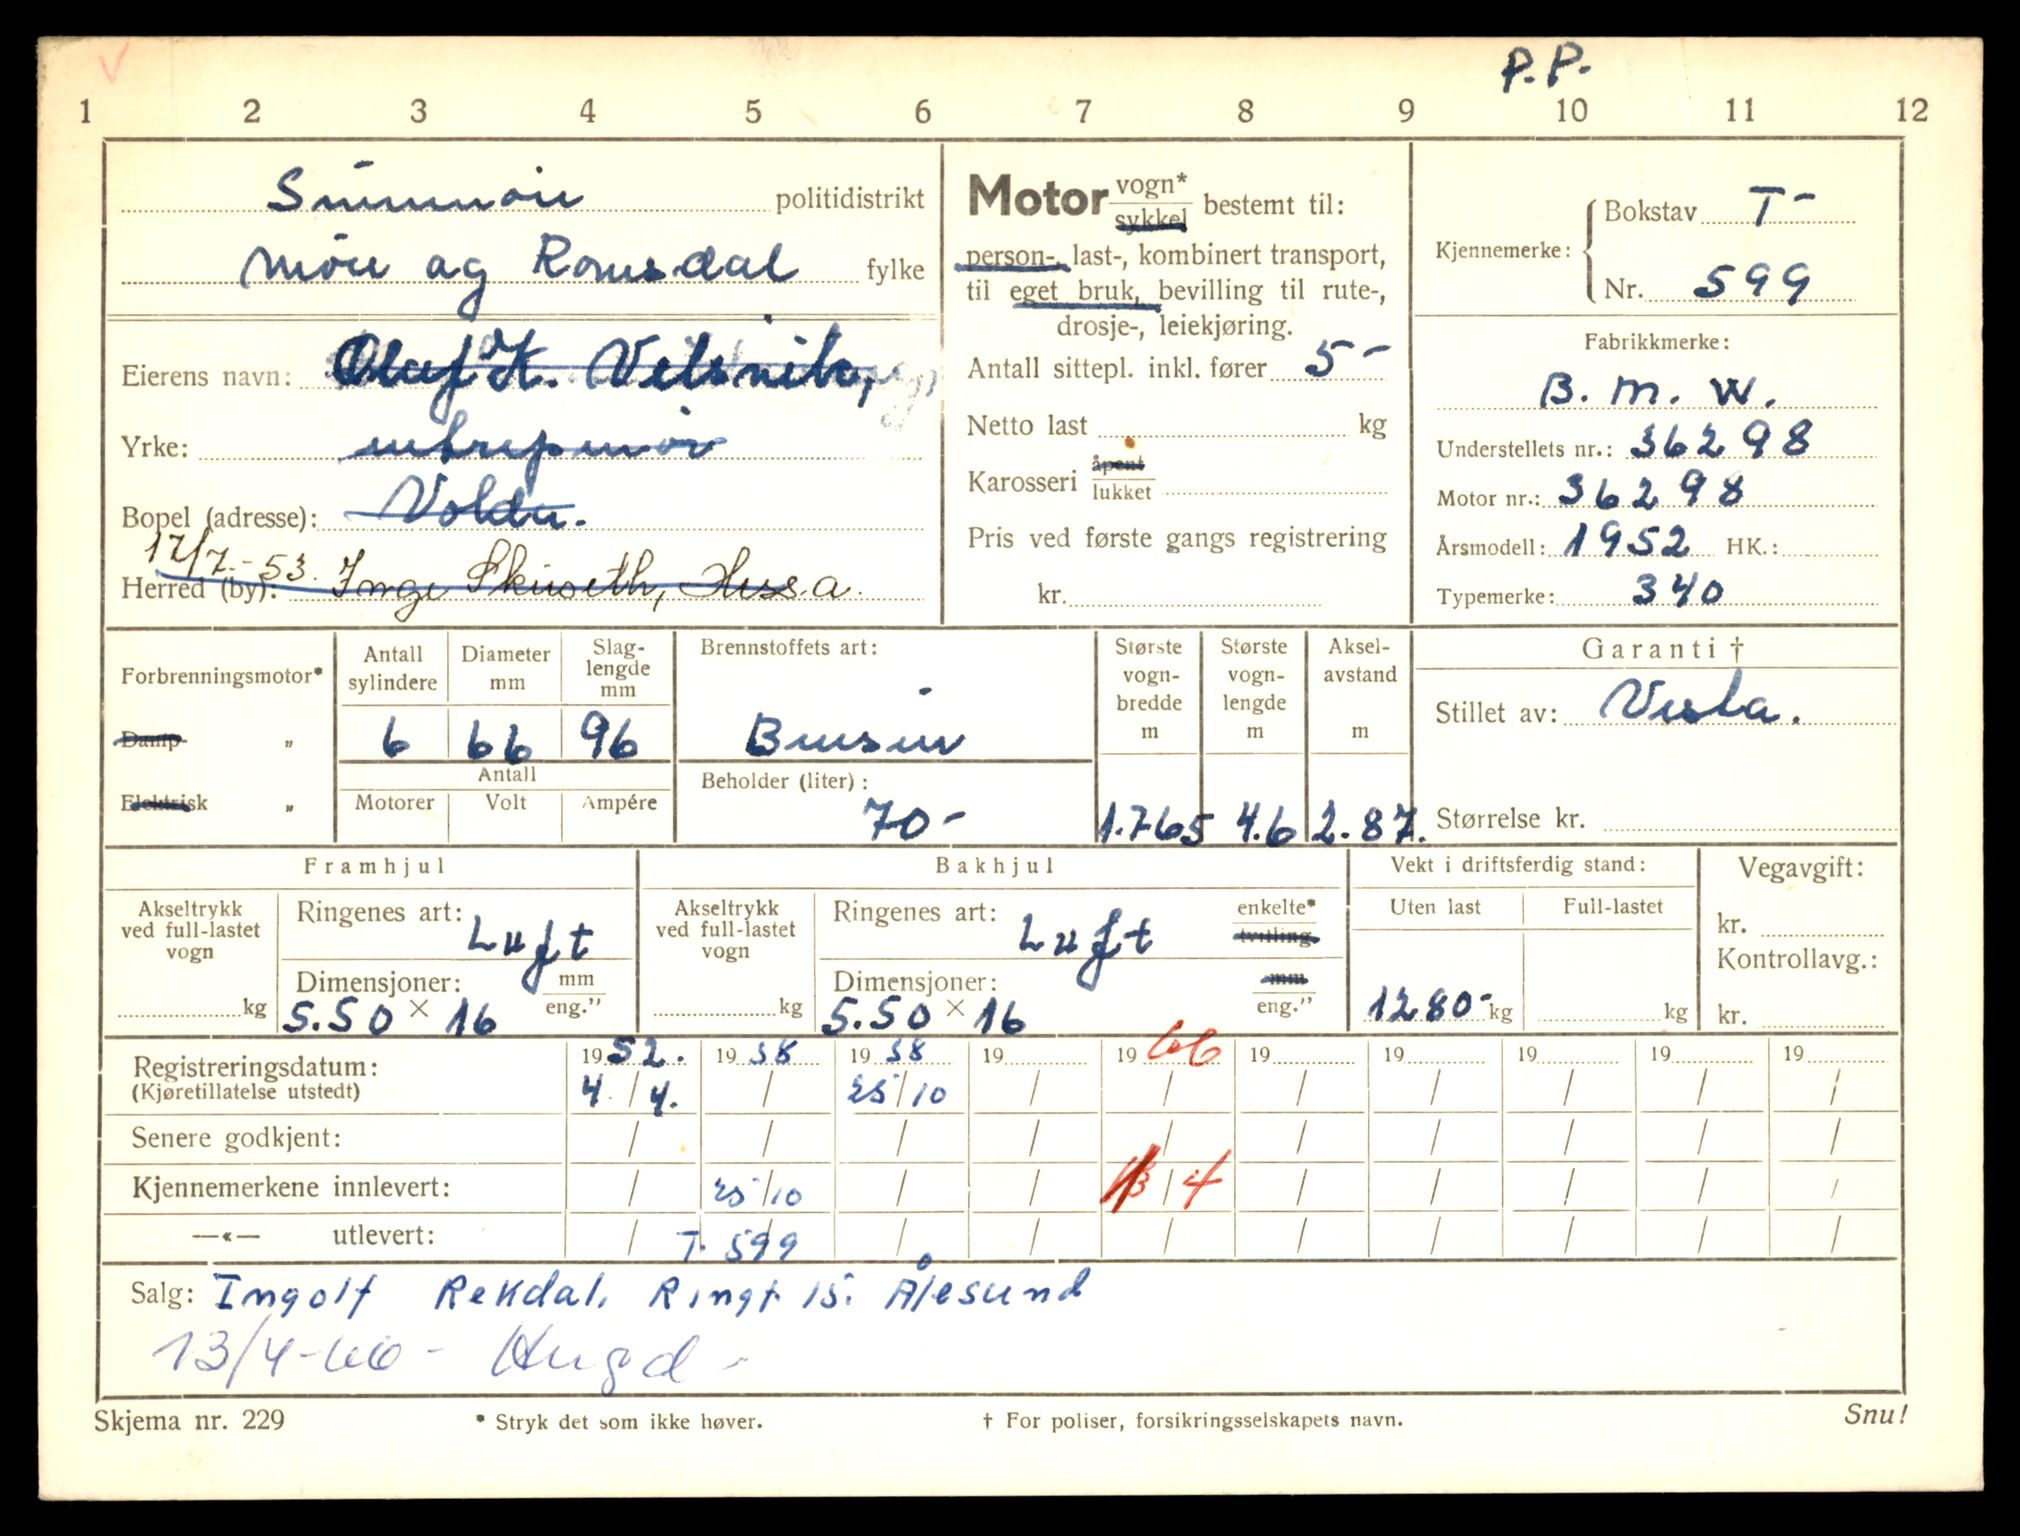 P.P.
1 2 3 4 5 6 7 8 9 10 11 12
Sunnmøre politidistrikt
Møre og Romsdal fylke
Eierens navn: Olaf K.
Yrke: entreprenør
Bopel (adresse): Volda.
17/7.-53. Inge Skuseth, Hessa.
Herred (by):
Motor vogn* sykkel bestemt til:
person-, last-, kombinert transport,
til eget bruk, bevilling til rute-,
drosje-, leiekjøring.
Antall sittepl. inkl. fører 5-
Netto last kg
Karosseri åpent lukket
Pris ved første gangs registrering
kr.
Kjennemerke: Bokstav T-
Nr. 599
Fabrikkmerke:
B. M. W.
Understellets nr.: 36298
Motor nr.: 36298
Årsmodell: 1952 HK.:
Typemerke: 340
Forbrenningsmotor*
Damp "
Elektrisk "
Antall sylindere Diameter mm Slag-lengde mm
6 66 96
Antall
Motorer Volt Ampére
Brennstoffets art:
Bensin
Beholder (liter):
70-
Største vogn-bredde m Største vogn-lengde m Aksel-avstand m
1.765 4.6 2.87.
Garanti †
Stillet av: Vesta.
Størrelse kr.
Framhjul
Akseltrykk ved full-lastet vogn
kg
Ringenes art: Luft
Dimensjoner: mm eng."
5.50 × 16
Bakhjul
Akseltrykk ved full-lastet vogn
kg
Ringenes art: Luft enkelte* tvilling
Dimensjoner: mm eng."
5.50 × 16
Vekt i driftsferdig stand:
Uten last Full-lastet
1280- kg kg
Vegavgift:
kr.
Kontrollavg.:
kr.
Registreringsdatum: 1952. 1958 1958 19 1966 19 19 19 19 19
(Kjøretillatelse utstedt) 4 / 4. / 25/10 / / / / / / /
Senere godkjent: / / / / / / / / / /
Kjennemerkene innlevert: / 25/10 / / 13/4 / / / / /
—«— utlevert: / T. 599 / / / / / / / /
Salg: Ingolf Rekdal, Ringt. 15. Ålesund
13/4-66-
Skjema nr. 229 * Stryk det som ikke høver. † For poliser, forsikringsselskapets navn. Snu!